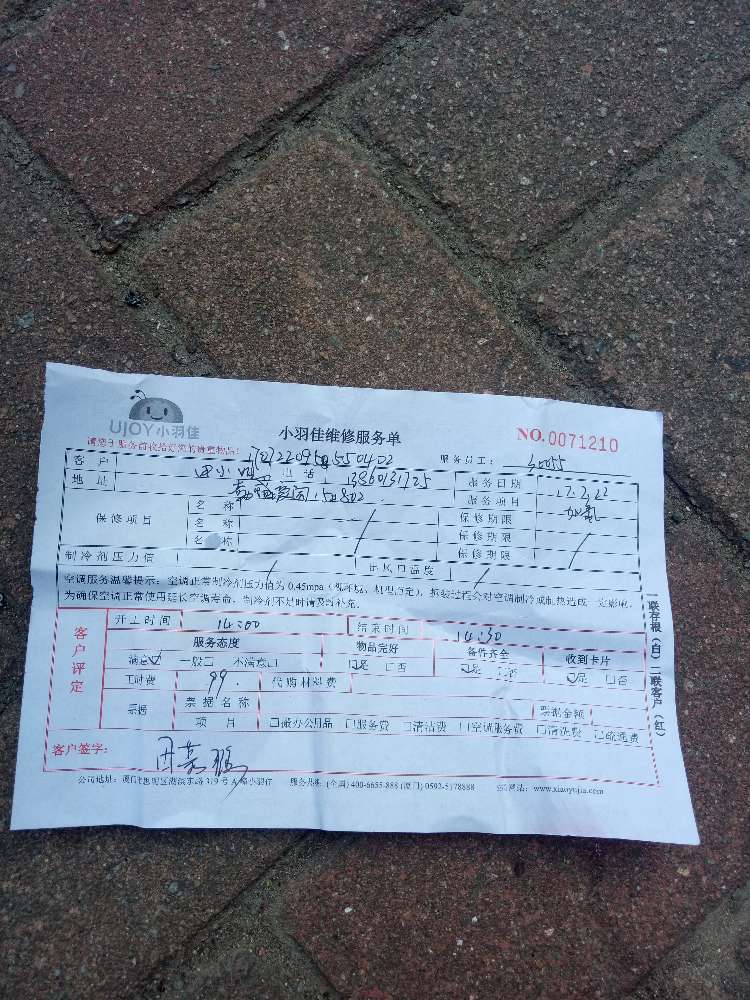 UJOY小羽佳
小羽佳维修服务单
NO.0071210
服务员工:
客户 田小姐 电话 13860131725 服务日期
地址 1501802 服务项目 加氟
保修项目 名称 保修期限
名称 保修期限
名称 保修期限
制冷剂压力值 出风口温度
空调服务温馨提示:空调正常制冷剂压力值为0.45mpa(视环境、机型而定),拆装过程会对空调制冷或制热造成一定影响,
为确保空调正常使用延长空调寿命,制冷剂不足时请及时补充。
客户评定
开工时间 14:00 结束时间 14:30
服务态度 物品完好 备件齐全 收到卡片
满意☑ 一般□ 不满意□ ☑是 □否 ☑是 □否 ☑是 □否
工时费 99 代购材料费
票据 票据名称 票据金额
项目 □办公用品 □服务费 □清洁费 □空调服务费 □清洗费 □疏通费
客户签字:
一联存根(白) 二联客户(红)
公司地址: 服务热线:(全国)400-6655-888(厦门)0592-5178888 公司网站:www.xiaoyujia.com